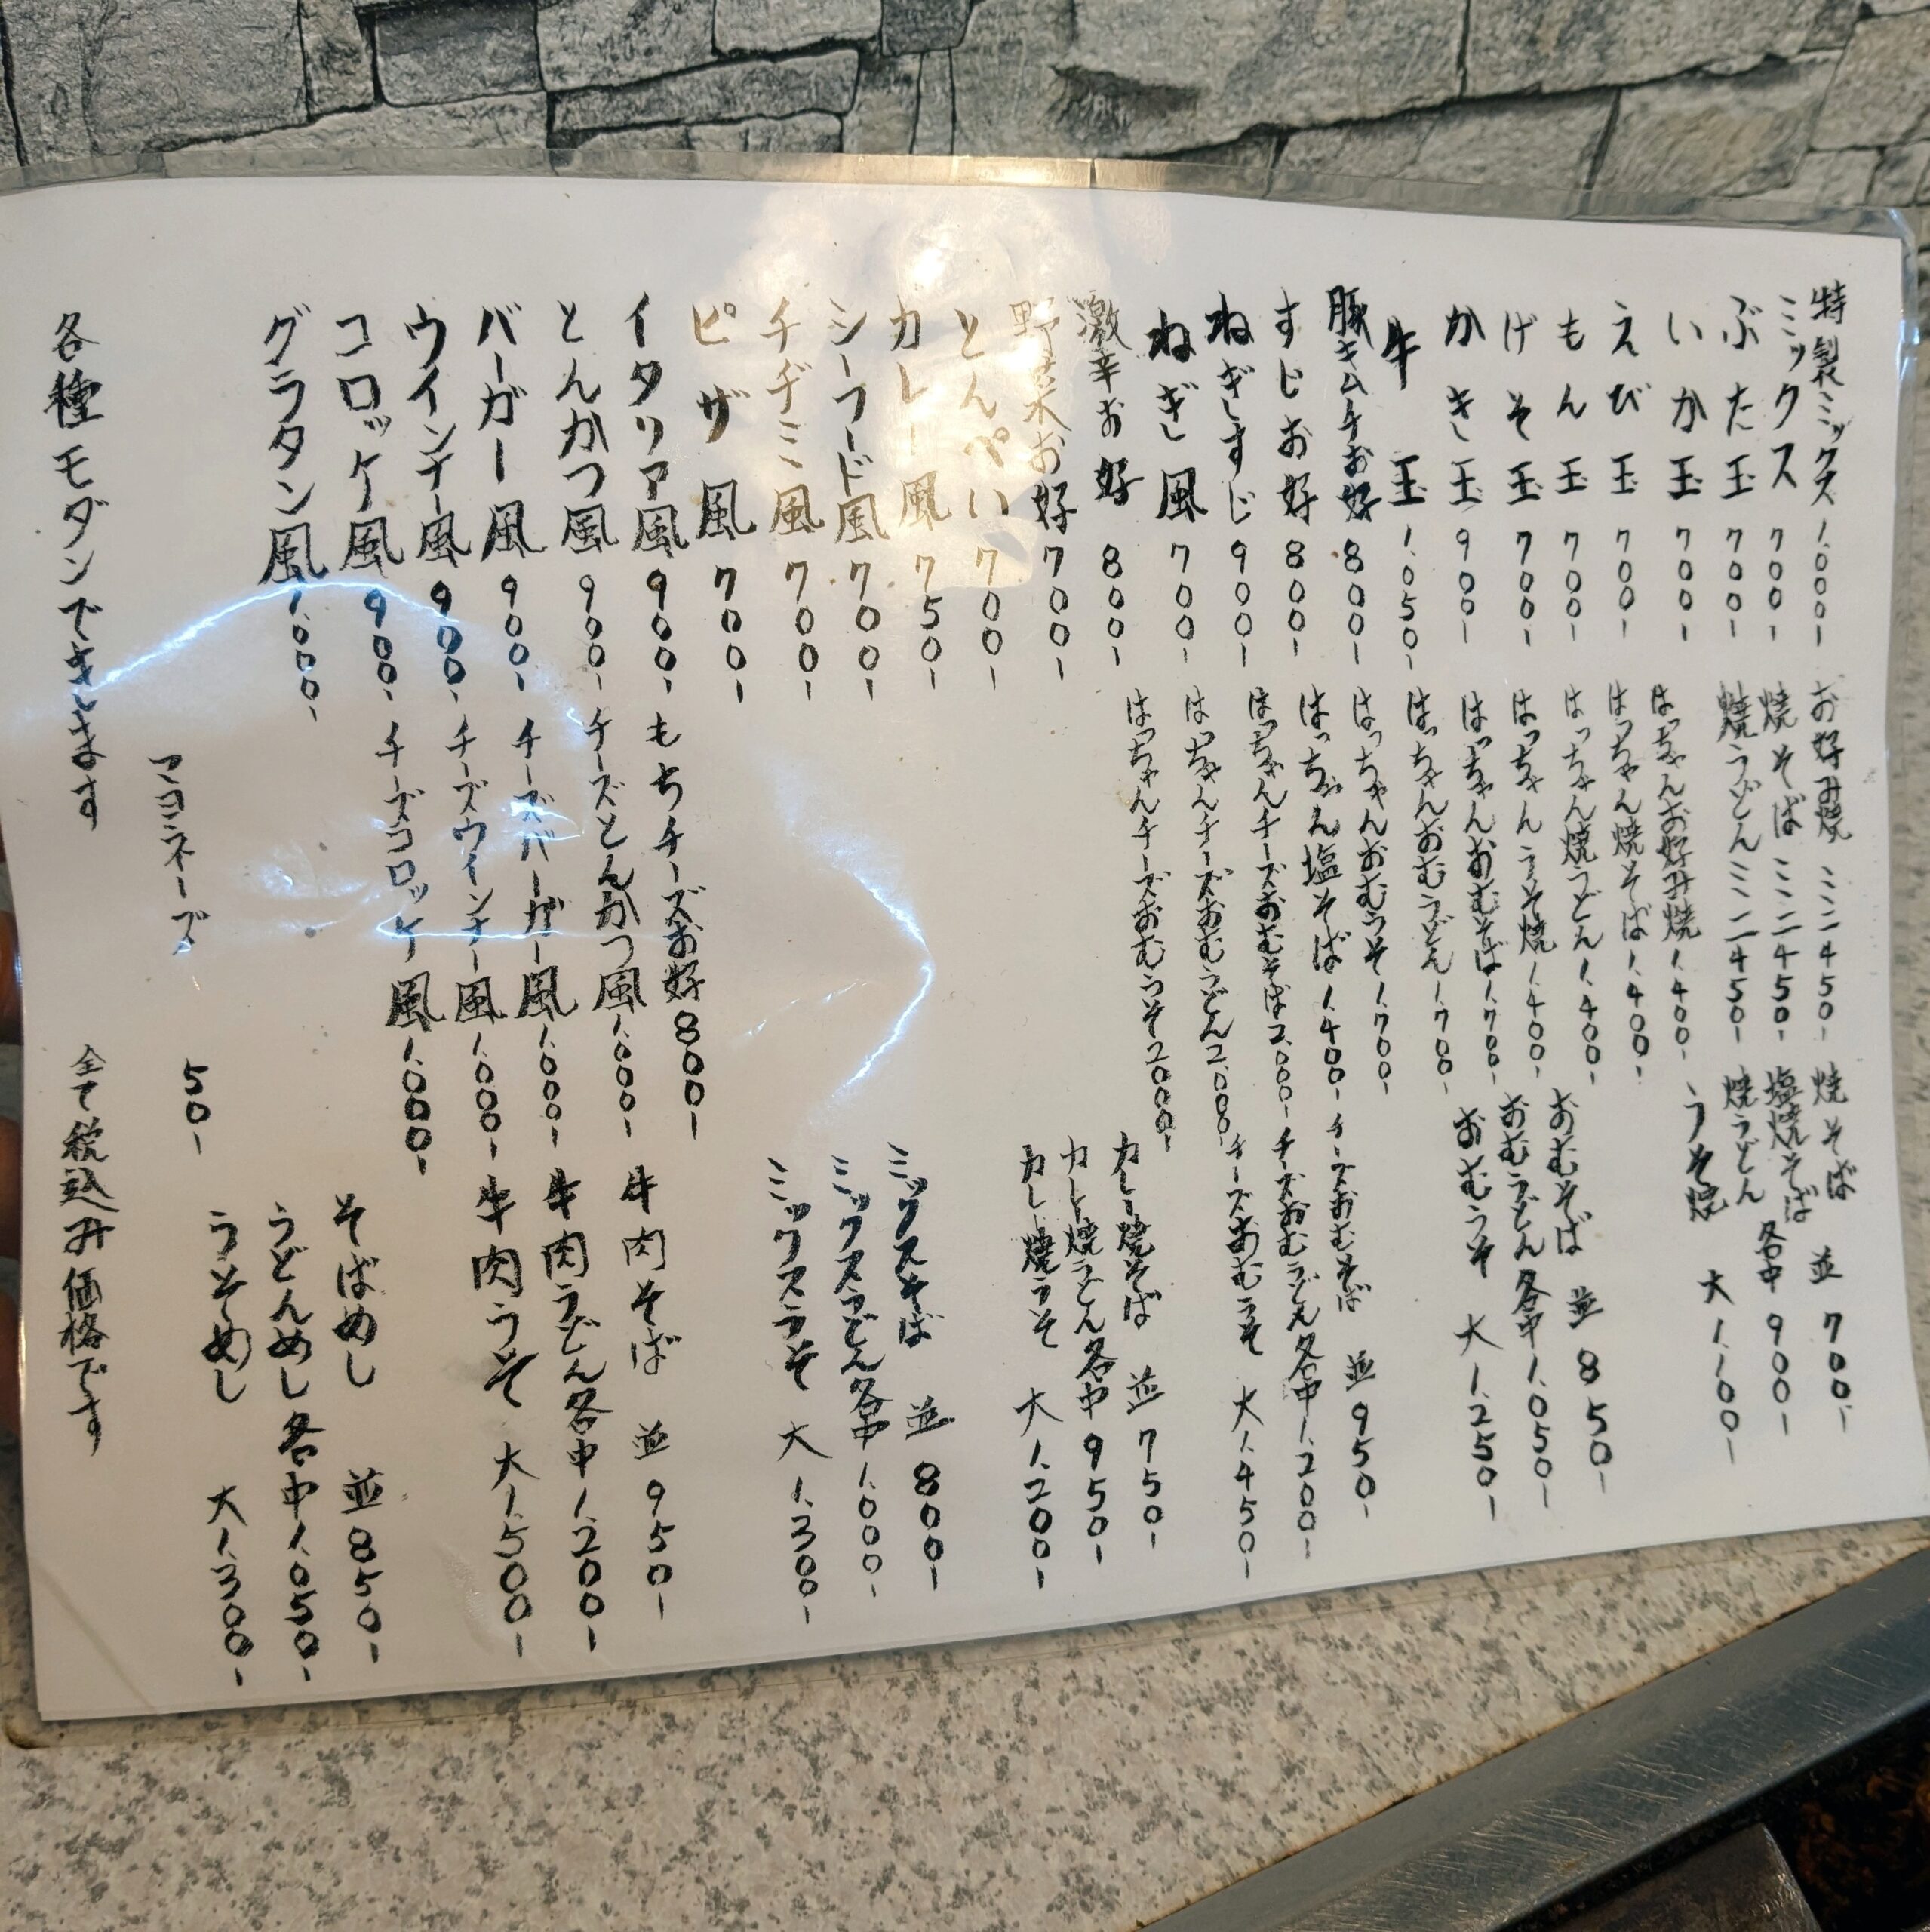 特製ミックス 1.000-
ミックス 700-
ぶた玉 700-
いか玉 700-
えび玉 700-
もん玉 700-
げそ玉 700-
かき玉 900-
牛玉 1.050-
豚キムチお好 800-
すじお好 800-
ねぎすじ 900-
ねぎ風 700-
激辛お好 800-
野菜お好 700-
とんぺい 700-
カレー風 750-
シーフード風 700-
チヂミ風 700-
ピザ風 700-
イタリア風 900-
とんかつ風 900-
バーガー風 900-
ウインナー風 900-
コロッケ風 900-
グラタン風 1.000-
お好み焼ミニ 450-
焼そばミニ 450-
焼うどんミニ 450-
はっちゃんお好み焼 1.400-
はっちゃん焼そば 1.400-
はっちゃん焼うどん 1.400-
はっちゃんうそ焼 1.400-
はっちゃんおむそば 1.700-
はっちゃんおむうどん 1.700-
はっちゃんおむうそ 1.700-
はっちゃん塩そば 1.400-
はっちゃんチーズおむそば 2.000-
はっちゃんチーズおむうどん 2.000-
はっちゃんチーズおむうそ 2.000-
もちチーズお好 800-
チーズとんかつ風 1.000-
チーズバーガー風 1.000-
チーズウインナー風 1.000-
チーズコロッケ風 1.000-
焼そば 並 700-
塩焼そば 各中 900-
焼うどん
うそ焼 大 1.100-
おむそば 並 850-
おむうどん 各中 1.050-
おむうそ 大 1.250-
チーズおむそば 並 950-
チーズおむうどん 各中 1.200-
チーズおむうそ 大 1.450-
カレー焼そば 並 750-
カレー焼うどん 各中 950-
カレー焼うそ 大 1.200-
ミックスそば 並 800-
ミックスうどん 各中 1.000-
ミックスうそ 大 1.300-
牛肉そば 並 950-
牛肉うどん 各中 1.200-
牛肉うそ 大 1.500-
そばめし 並 850-
うどんめし 各中 1.050-
うそめし 大 1.300-
マヨネーズ 50-
各種モダンできます
全て税込み価格です